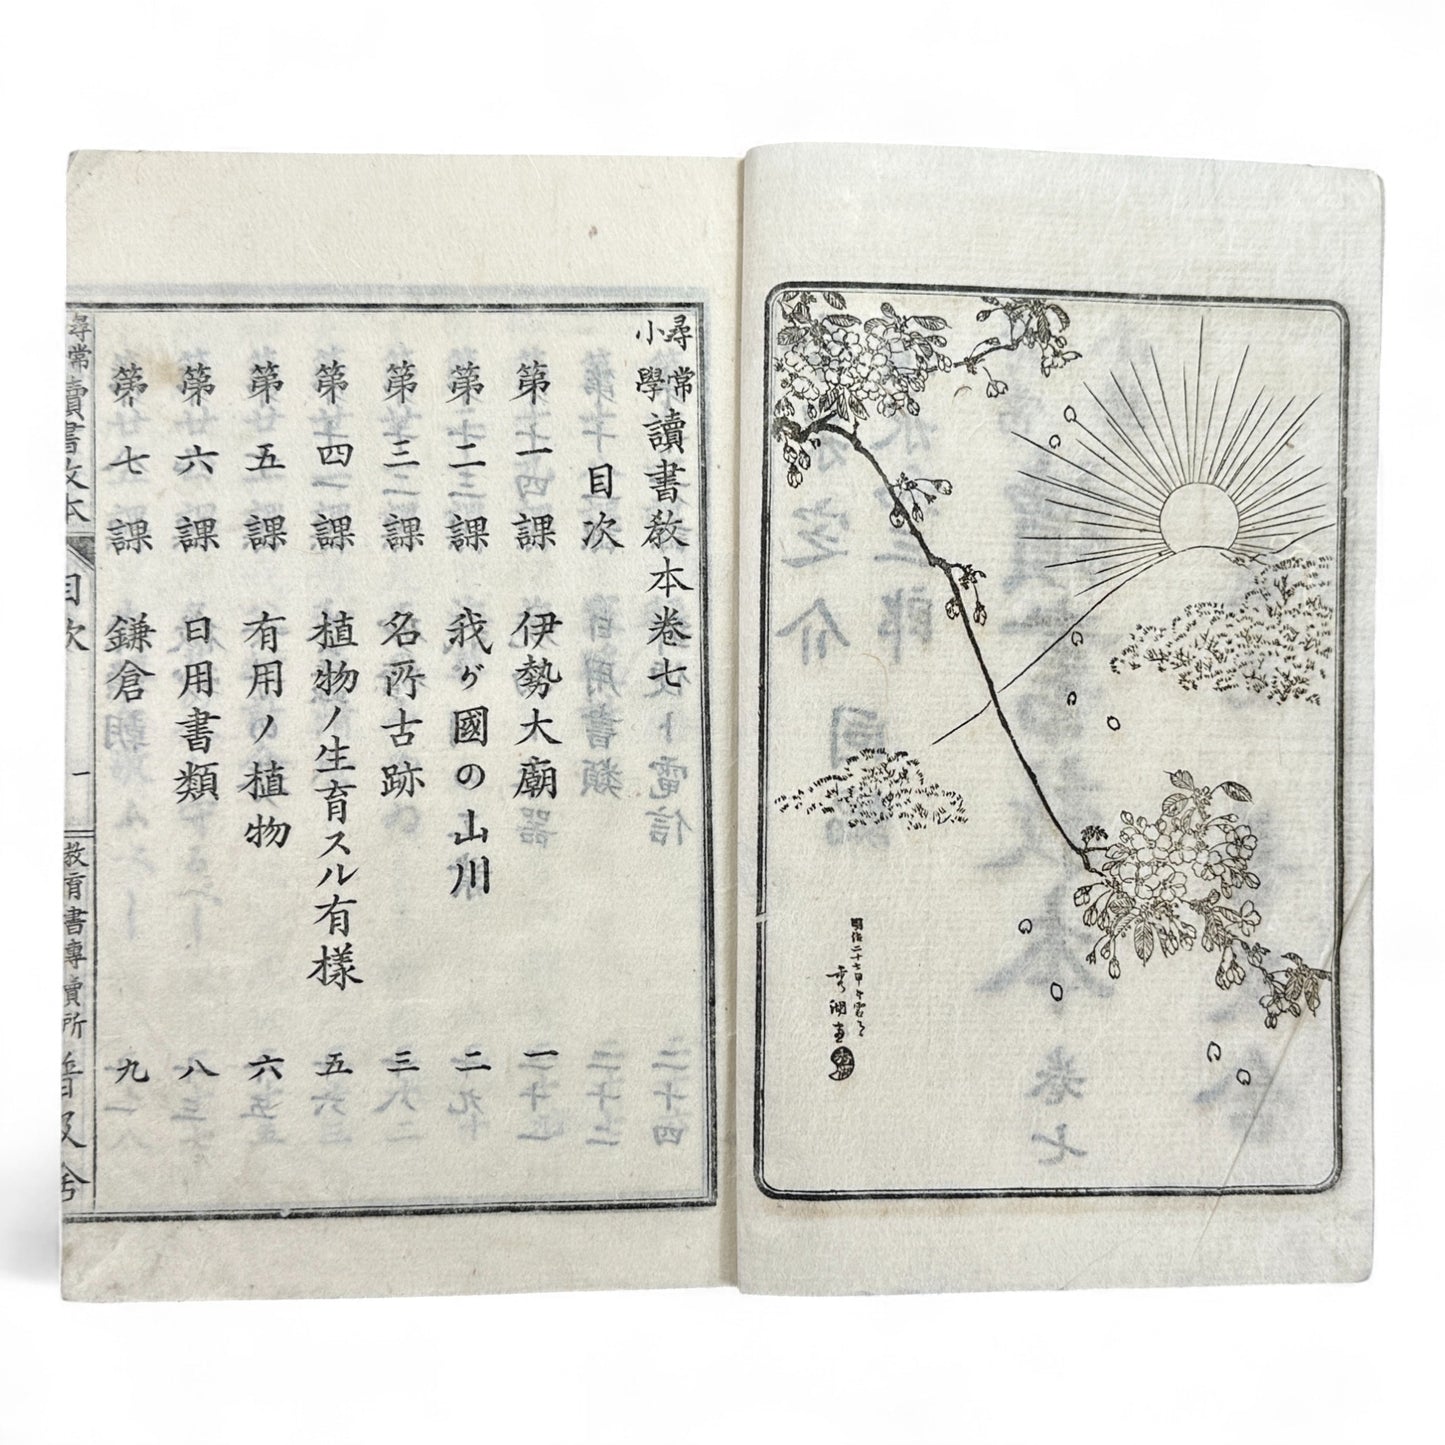 明治二十七甲午
尋常小學讀書敎本卷七
目次
第一課 伊勢大廟 一
第二課 我ガ國の山川 二
第三課 名所古跡 三
第四課 植物ノ生育スル有樣 五
第五課 有用ノ植物 六
第六課 日用書類 八
第七課 鎌倉 九
尋常讀書敎本 目次 一 教育書專賣所 普及舍